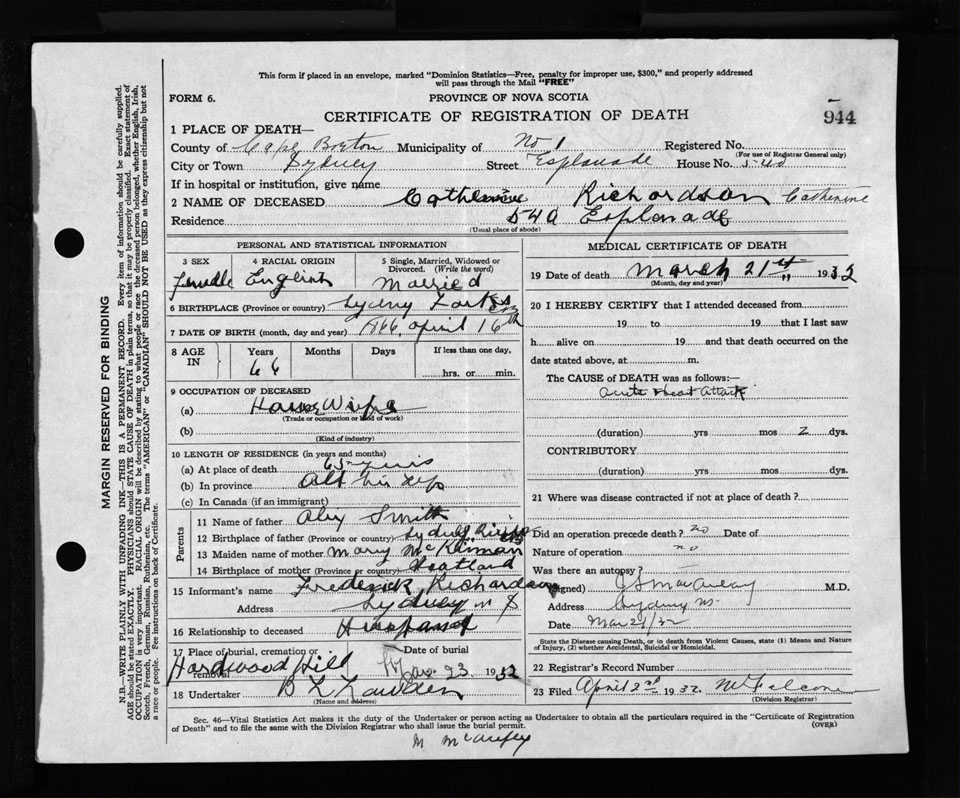 This form if placed in an envelope, marked "Dominion Statistics—Free, penalty for improper use, $300," and properly addressed
will pass through the Mail "FREE"
FORM 6.
PROVINCE OF NOVA SCOTIA
944
CERTIFICATE OF REGISTRATION OF DEATH
1 PLACE OF DEATH—
County of Cape Breton Municipality of No 1 Registered No.
(For use of Registrar General only)
City or Town Sydney Street Esplanade House No. 540
If in hospital or institution, give name
2 NAME OF DECEASED Catherine Richardson Catherine
Residence 540 Esplanade
(Usual place of abode)
PERSONAL AND STATISTICAL INFORMATION
3 SEX 4 RACIAL ORIGIN 5 Single, Married, Widowed or Divorced. (Write the word)
Female English Married
6 BIRTHPLACE (Province or country) Sydney Forks CB
7 DATE OF BIRTH (month, day and year) 1866 April 16th
8 AGE IN Years Months Days If less than one day,
66 hrs. or min.
9 OCCUPATION OF DECEASED
(a) House Wife
(Trade or occupation or kind of work)
(b)
(Kind of industry)
10 LENGTH OF RESIDENCE (in years and months)
(a) At place of death 65 years
(b) In province All her life
(c) In Canada (if an immigrant)
Parents
11 Name of father Smith
12 Birthplace of father (Province or country) Sydney
13 Maiden name of mother Mary McKinnan
14 Birthplace of mother (Province or country) Scotland
15 Informant's name Frederick Richardson
Address Sydney N S
16 Relationship to deceased Husband
17 Place of burial, cremation or removal Date of burial
Hardwood Hill Mar 23 1932
18 Undertaker
(Name and address)
MEDICAL CERTIFICATE OF DEATH
19 Date of death March 21st 1932
(Month, day and year)
20 I HEREBY CERTIFY that I attended deceased from
19 to 19 that I last saw
h alive on 19 and that death occurred on the
date stated above, at m.
The CAUSE of DEATH was as follows:—
Acute Heart Attack
(duration) yrs mos 2 dys.
CONTRIBUTORY
(duration) yrs mos dys.
21 Where was disease contracted if not at place of death?
Did an operation precede death? no Date of
Nature of operation no
Was there an autopsy?
(Signed) M.D.
Address Sydney NS.
Date Mar 21/32
State the Disease causing Death, or in death from Violent Causes, state (1) Means and Nature
of Injury, (2) whether Accidental, Suicidal or Homicidal.
22 Registrar's Record Number
23 Filed April 2nd 1932.
(Division Registrar)
Sec. 46—Vital Statistics Act makes it the duty of the Undertaker or person acting as Undertaker to obtain all the particulars required in the "Certificate of Registration
of Death" and to file the same with the Division Registrar who shall issue the burial permit. (OVER)
MARGIN RESERVED FOR BINDING
N.B.—WRITE PLAINLY WITH UNFADING INK—THIS IS A PERMANENT RECORD. Every item of information should be carefully supplied.
AGE should be stated EXACTLY. PHYSICIANS should STATE CAUSE OF DEATH in plain terms, so that it may be properly classified. Exact statement of
OCCUPATION is very important. RACIAL ORIGIN will be described by stating to what people or race the deceased person belonged, whether English, Irish,
Scotch, French, German, Russian, Ruthenian, etc. The terms "AMERICAN" or "CANADIAN" SHOULD NOT BE USED as they express citizenship but not
a race or people. See instructions on back of Certificate.